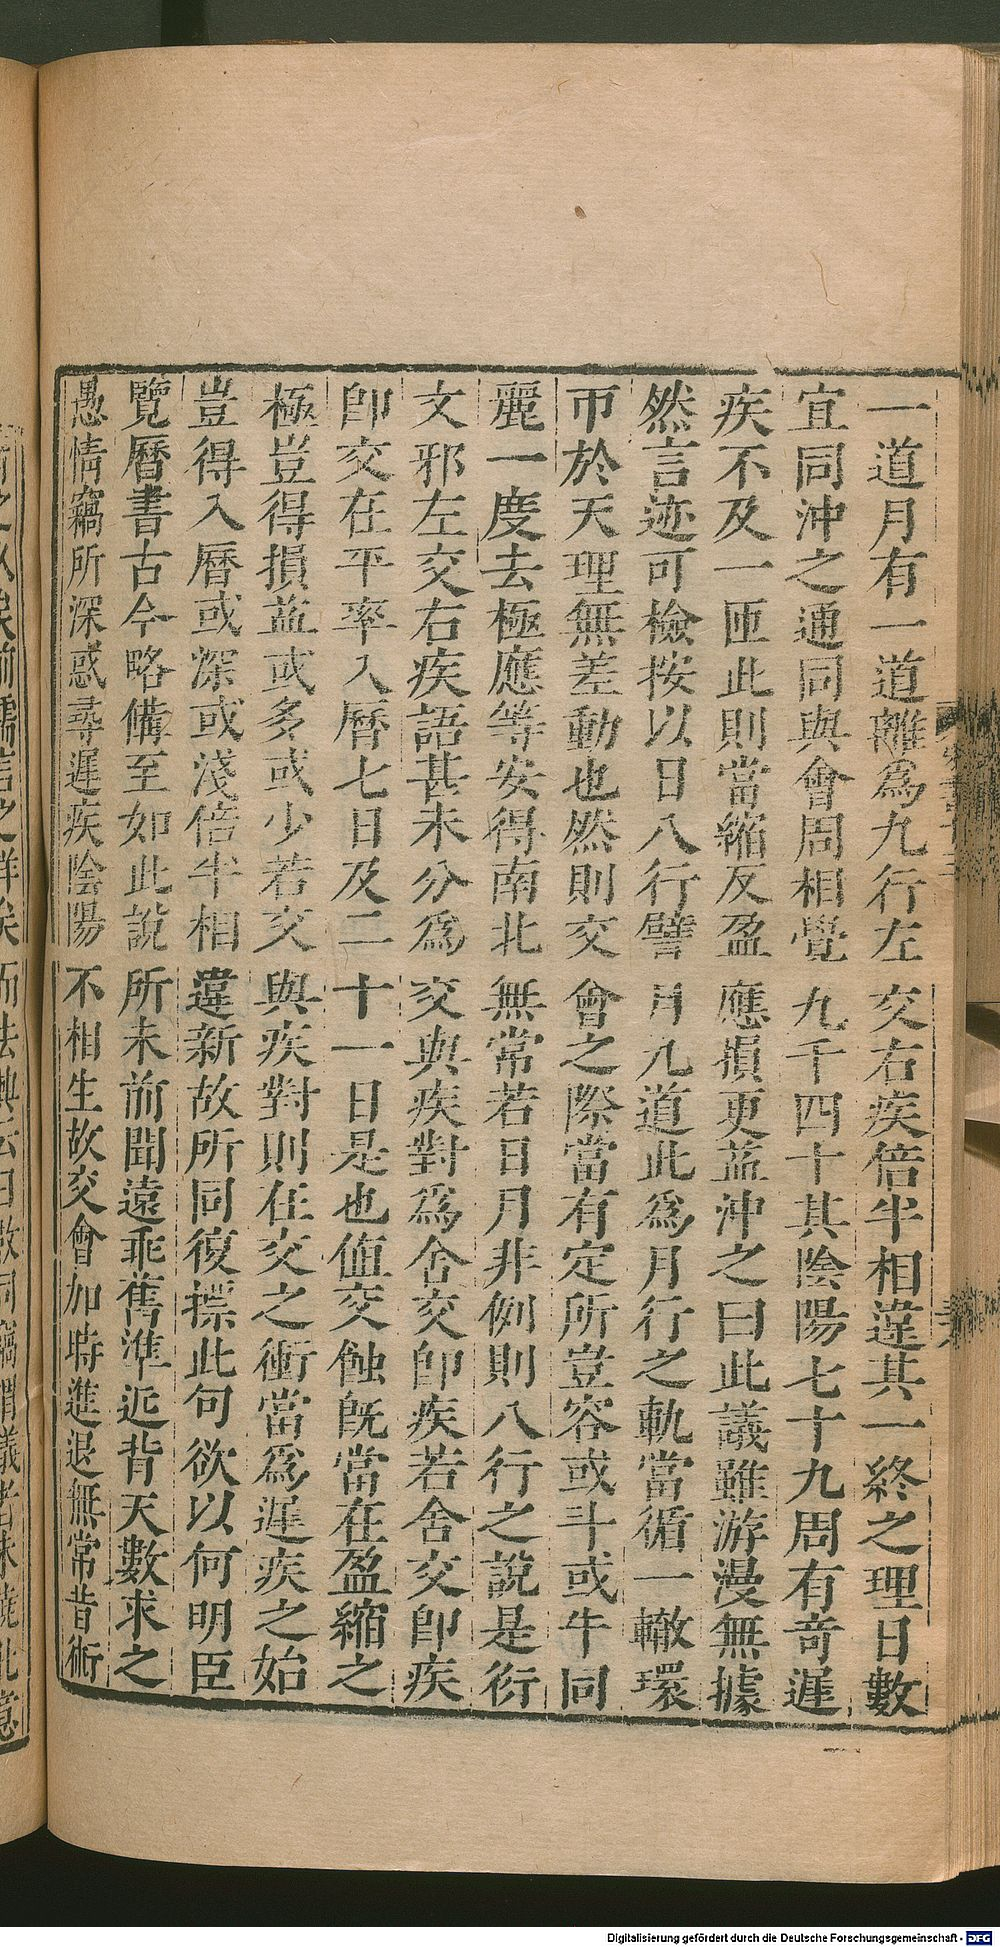 一道月有一道離爲九行左交右疾倍半相違其一終之理日數
宜同沖之通同與會周相覺九千四十其陰陽七十九周有奇遲
疾不及一匝此則當縮反盈應損更益沖之曰此議雖游漫無據
然言迹可檢按以日八行譬月九道此爲月行之軌當循一轍環
帀於天理無差動也然則交會之際當有定所豈容或斗或牛同
麗一度去極應等安得南北無常若日月非例則八行之說是衍
文邪左交右疾語甚未分爲交與疾對爲舍交卽疾若舍交卽疾
卽交在平率入曆七日及二十一日是也値交蝕旣當在盈縮之
極豈得損益或多或少若交與疾對則在交之衝當爲遲疾之始
豈得入曆或深或淺倍半相違新故所同復摽此句欲以何明臣
覽曆書古今略備至如此說所未前聞遠乖舊準近背天數求之
愚情竊所深惑尋遲疾陰陽不相生故交會加時進退無常昔術
Digitalisierung gefördert durch die Deutsche Forschungsgemeinschaft - DFG